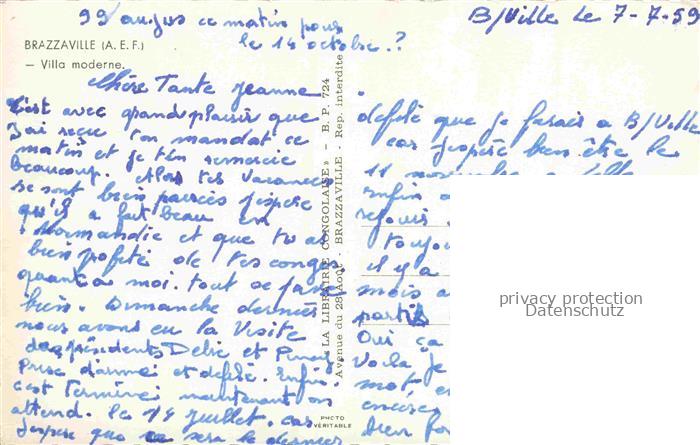 99 au jus ce matin pour
le 14 octobre.?
B/Ville le 7-7-59
BRAZZAVILLE (A. E. F.)
— Villa moderne.
Chère Tante Jeanne
C'est avec grand plaisir que
J'ai reçu ton mandat ce
matin et je t'en remercie
beaucoup. Alors tes vacances
se sont bien passées j'espère
qu'il a fait beau en
Normandie et que tu as
bien profité de tes congés
quant a moi. tout se passe
bien. Dimanche dernier
nous avons eu la Visite
des présidents Debré et
Prise d'armes et défilé. Enfin
c'est terminé maintenant on
attend. le 14 juillet. car
j'espère que ce sera le dernier
« LA LIBRAIRIE CONGOLAISE » — B. P. 724
Avenue du 28 Août - BRAZZAVILLE - Rep. interdite
PHOTO
VÉRITABLE
défilé que je ferais a B/Ville
car j'espère bien être le
11 novembre a
Enfin
toujou
il y a
mois a
partis
Oui ça
Voila je
mot e
bien
privacy protection
Datenschutz